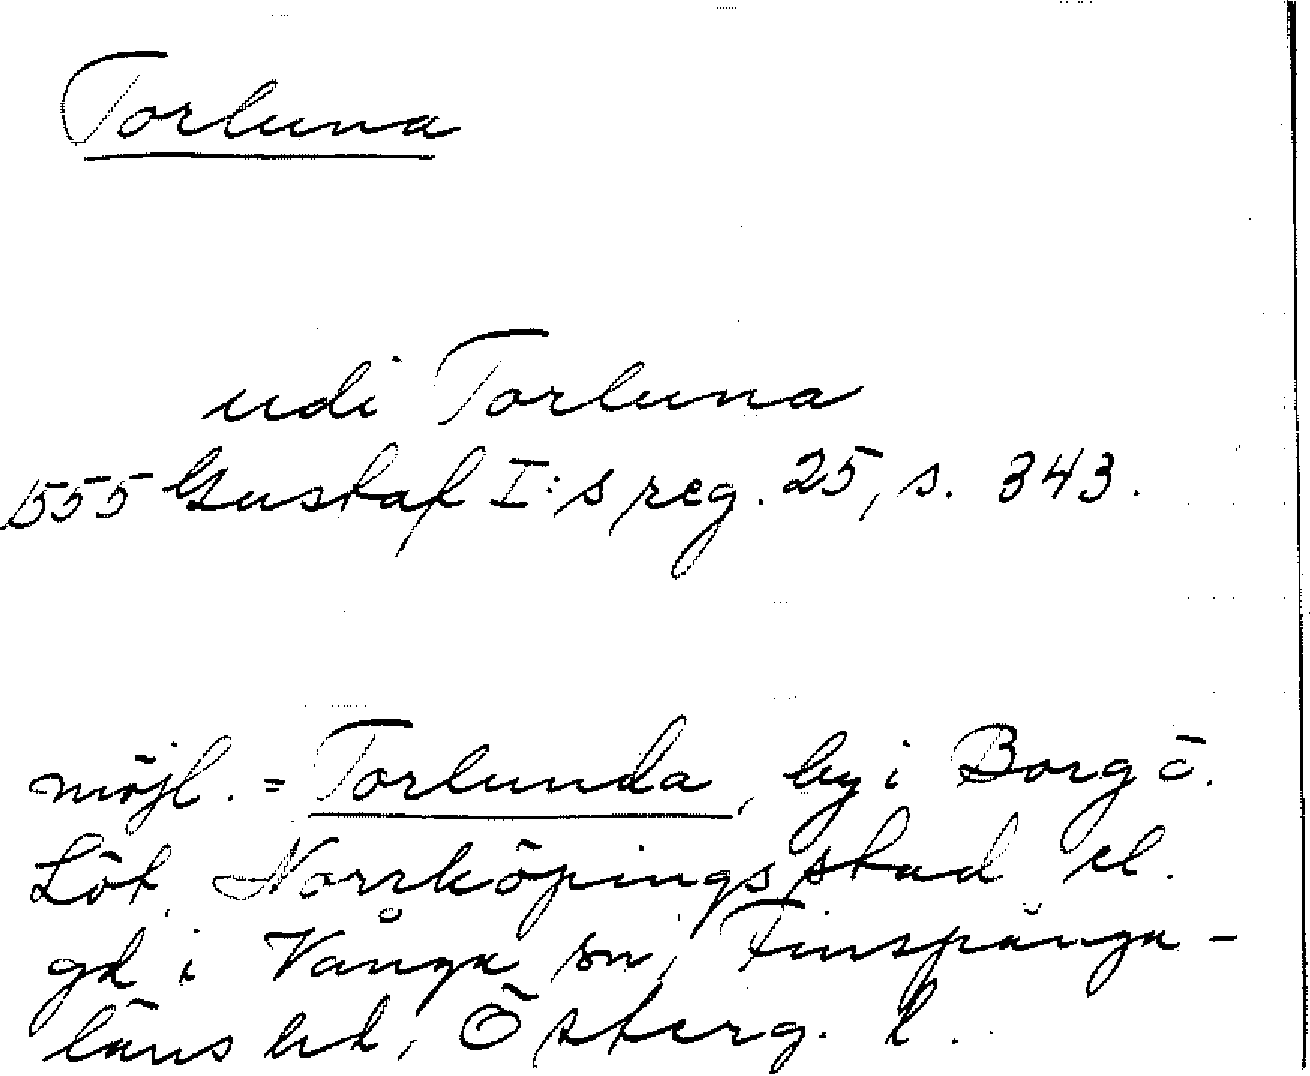 Torluna
udi Torluna
1555 Gustaf I:s reg. 25, s. 343.
möjl. = Torlunda, by i Borg o.
Löt, Norrköpings stad el.
gd i Vånga sn, Finspånga-
läns hd, Österg. l.